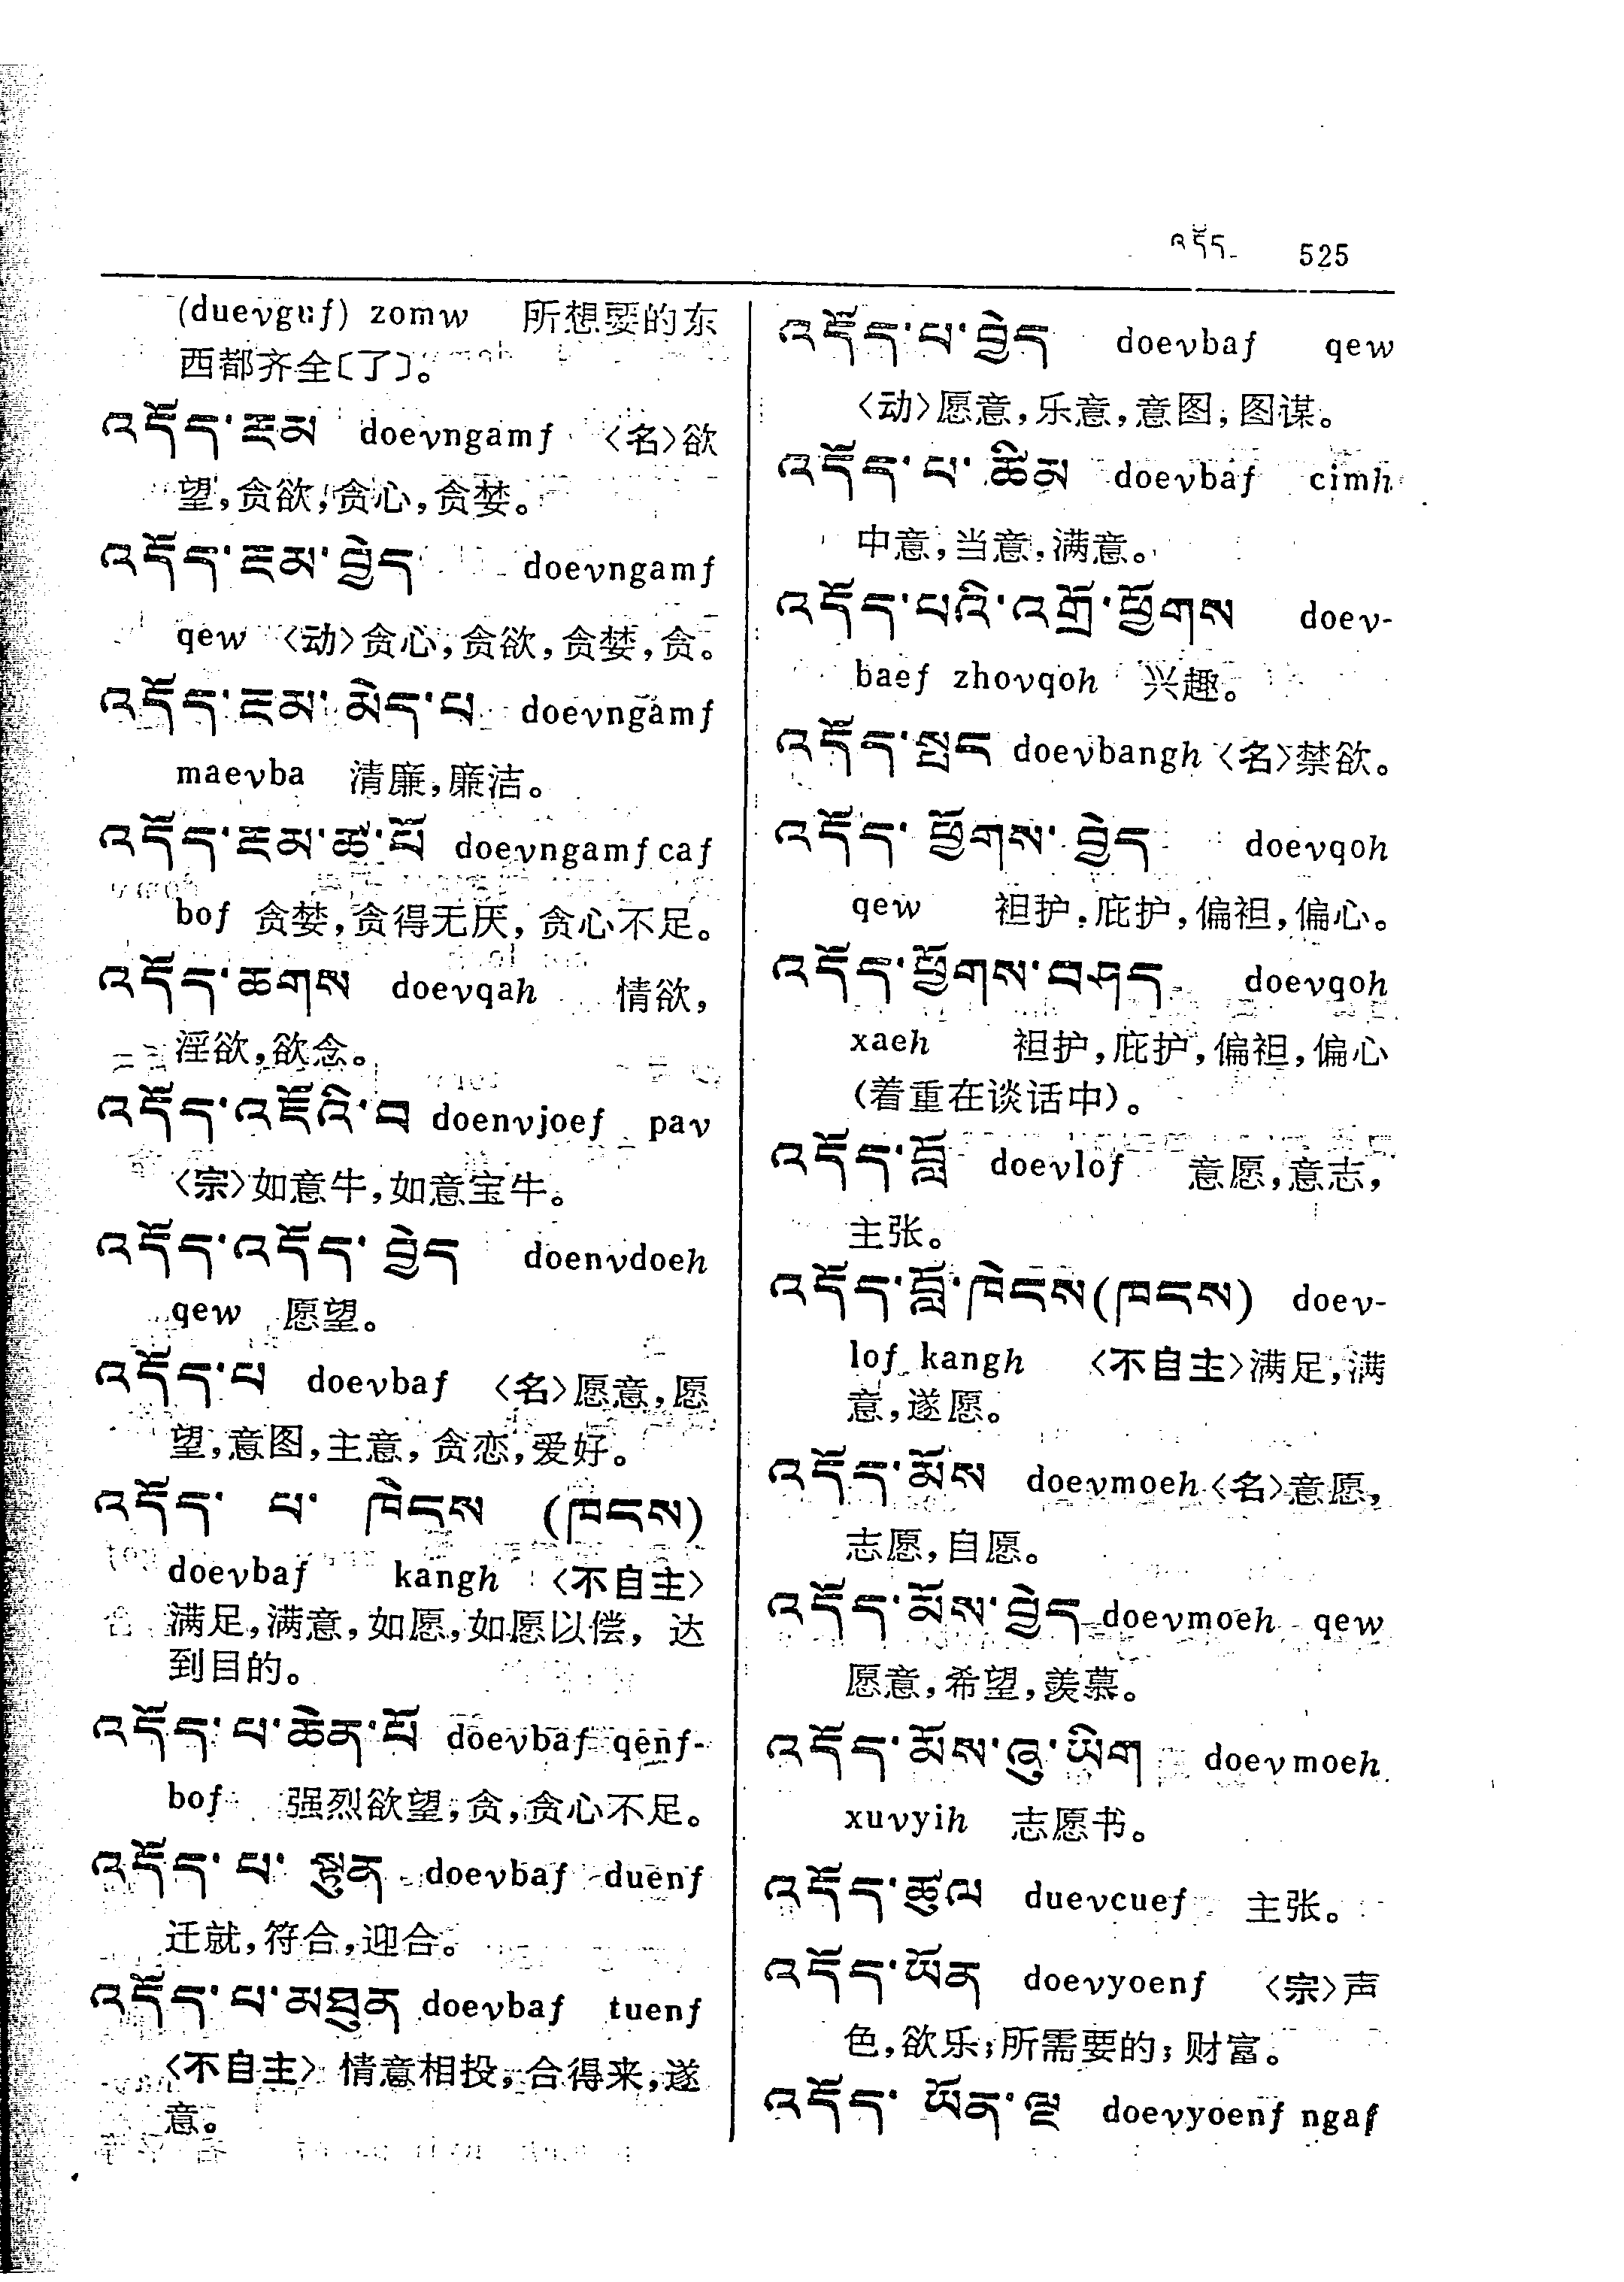 འདོད 525
(duevguf) zomw 所想要的东
西都齐全〔了〕。
འདོད་ངམ doevngamf 〈名〉欲
望,贪欲,贪心,贪婪。
འདོད་ངམ་བྱེད doevngamf
qew 〈动〉贪心,贪欲,贪婪,贪。
འདོད་ངམ་མེད་པ doevngamf
maevba 清廉,廉洁。
འདོད་ངམ་ཚ་པོ doevngamf caf
bof 贪婪,贪得无厌,贪心不足。
འདོད་ཆགས doevqah 情欲,
淫欲,欲念。
འདོད་འཇོའི་བ doenvjoef pav
〈宗〉如意牛,如意宝牛。
འདོད་འདོད་བྱེད doenvdoeh
qew 愿望。
འདོད་པ doevbaf 〈名〉愿意,愿
望,意图,主意,贪恋,爱好。
འདོད་པ་ཁེངས (ཁངས)
doevbaf kangh 〈不自主〉
满足,满意,如愿,如愿以偿,达
到目的。
འདོད་པ་ཆེན་པོ doevbaf qenf-
bof 强烈欲望,贪,贪心不足。
འདོད་པ་སྟུན doevbaf duenf
迁就,符合,迎合。
འདོད་པ་མཐུན doevbaf tuenf
〈不自主〉情意相投,合得来,遂
意。
འདོད་པ་བྱེད doevbaf qew
〈动〉愿意,乐意,意图,图谋。
འདོད་པ་ཚིམ doevbaf cimh
中意,当意,满意。
འདོད་པའི་འགྲོ་ཕྱོགས doev-
baef zhovqoh 兴趣。
འདོད་སྤང doevbangh 〈名〉禁欲。
འདོད་ཕྱོགས་བྱེད doevqoh
qew 袒护,庇护,偏袒,偏心。
འདོད་ཕྱོགས་བཤད doevqoh
xaeh 袒护,庇护,偏袒,偏心
(着重在谈话中)。
འདོད་བློ doevlof 意愿,意志,
主张。
འདོད་བློ་ཁེངས(ཁངས) doev-
lof kangh 〈不自主〉满足,满
意,遂愿。
འདོད་མོས doevmoeh〈名〉意愿,
志愿,自愿。
འདོད་མོས་བྱེད doevmoeh qew
愿意,希望,羡慕。
འདོད་མོས་ཞུ་ཡིག doevmoeh
xuvyih 志愿书。
འདོད་ཚུལ duevcuef 主张。
འདོད་ཡོན doevyoenf 〈宗〉声
色,欲乐;所需要的;财富。
འདོད་ཡོན་ལྔ doevyoenf ngaf